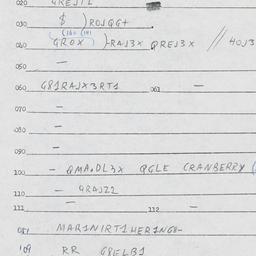 020 GREJ1L
030 $ )ROJQG+
040 GROX )-RAJ3X QREJ3X // 4OJ3
050 —
060 G81RAJX3RT1 061 —
070 —
080 —
090 —
100 — QMA.DL3X QGLE CRANBERRY (
110 — 4RAJ22
111 — 112 —
MAR1N1RT1HER1NG8-
109 RR G8ELB1